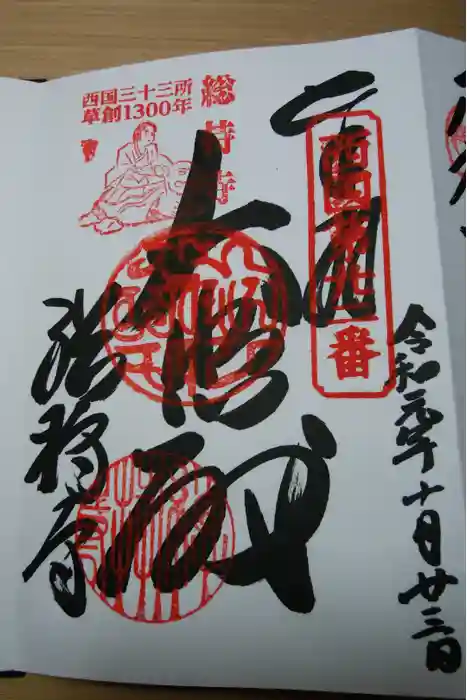 令和元年十月廿三日
奉拝
西国第廿二番
大悲殿
総持寺
総持寺
西国三十三所
草創1300年